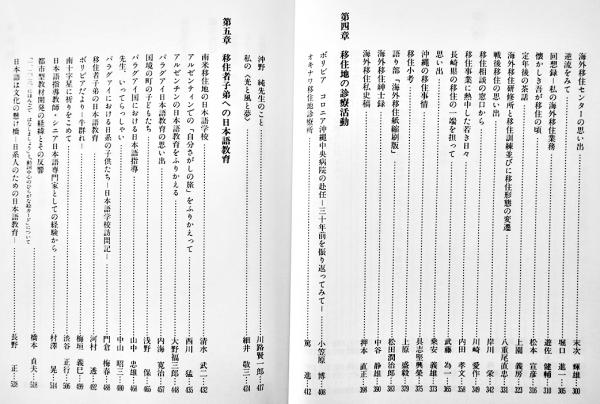 海外移住センターの思い出 末次 輝雄 300
逆流をみて 堀口 進一 307
回想録―私の海外移住業務 遊佐 健輔 310
懐かしき吾が移住の頃 松本 宣彦 316
定年後の茶話 上園 義房 323
海外移住研修所と移住訓練並びに移住形態の変遷 八重尾直忠 331
戦後移住の思い出 岸川 榮 342
移住相談の窓口から 川崎 愛作 348
移住事業に熱中した若き日々 内田 孝文 358
長崎県の移住の一端を担って 武藤 為一 365
思い出 乗安 義嗣 371
沖縄の移住事情 具志堅興榮 375
移住小考 上原 盛毅 379
語り部「海外移住紙縮刷版」 松田 潤治郎 383
海外移住紳士録 中谷 静雄 390
海外移住私史稿 押本 直正 398
第四章 移住地の診療活動
ボリビア コロニア沖縄中央病院の赴任―三十年前を振り返ってみて― 小笠原 博 408
オキナワ移住地診療所 篤 進 412
沖野 純先生のこと 川路賢一郎 417
私の〈光と風と夢〉 細井 敬三 424
第五章 移住者子弟への日本語教育
南米移住地の日本語学校 清水 武二 432
アルゼンティンでの「自分さがしの旅」をふりかえって 西川 猛 435
アルゼンチンの日本語教育をふりかえる 大野福三郎 448
パラグアイ日本語教育の思い出 内海 寛治 457
国境の町の子どもたち 浅野 保 465
パラグアイ国における日本語指導 山中 忠雄 468
先生、いってらっしゃい 中山 昭三 480
パラグアイにおける日系の子供たち―日本語学校訪問記― 門倉 梅春 488
移住者子弟の日本語教育 河村 透 492
ボリビアだより―牛群れ― 梅垣 義巳 499
南十字星に祈りをこめて 渋谷 正行 506
日本語指導教師・シニア日本語専門家としての経験から 村澤 晃 514
都市型教材開発の経緯とその反響
橋本 貞夫 518
日本語は文化の懸け橋―日系人のための日本語教育― 長野 正 528